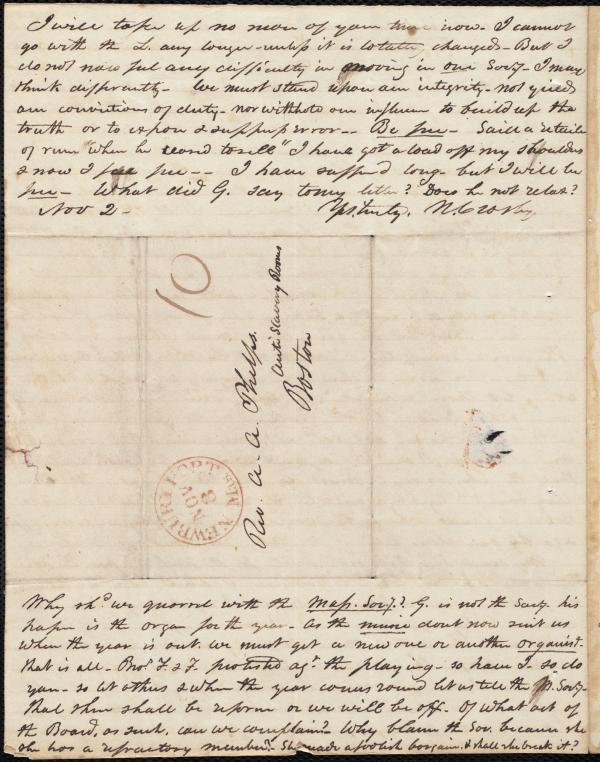 I will take up no more of your time now. I cannot
go with the L. any longer - unless it is totally changed - But I
do not now feel any difficulty in moving in our Socy. - I may
think differently - We must stand upon our integrity - not yield
our convictions of duty - nor withhold our influence to build up the
truth or to expose & suppress error -- Be free - Said a retailer
of rum "when he ceased to sell" I have got a load off my shoulders
& now I feel free -- I have suffered long - but I will be
free - What did G. say to my letter? Does he not relax?
Nov 2 - Yrs. truly, N. Crosby
10
Rev. A. A. Phelps.
Anti Slavery Rooms
Boston
NEWBURYPORT MAS.
NOV
3
Why shd. we quarrel with the Mass. Socy.? G. is not the Socy. his
paper is the organ for the year - As the music don't now suit us
when the year is out. we must get a new one or another organist.
that is all - Bros. F. & T. protested agt. the playing - so have I - so do
you - so let others & when the year comes round let us tell the M. Socy.
that there shall be reform or we will be off. Of what act of
the Board, as such, can we complain? Why blame the Soc. because she
she has a refractory member? She made a foolish bargain. & shall she break it?